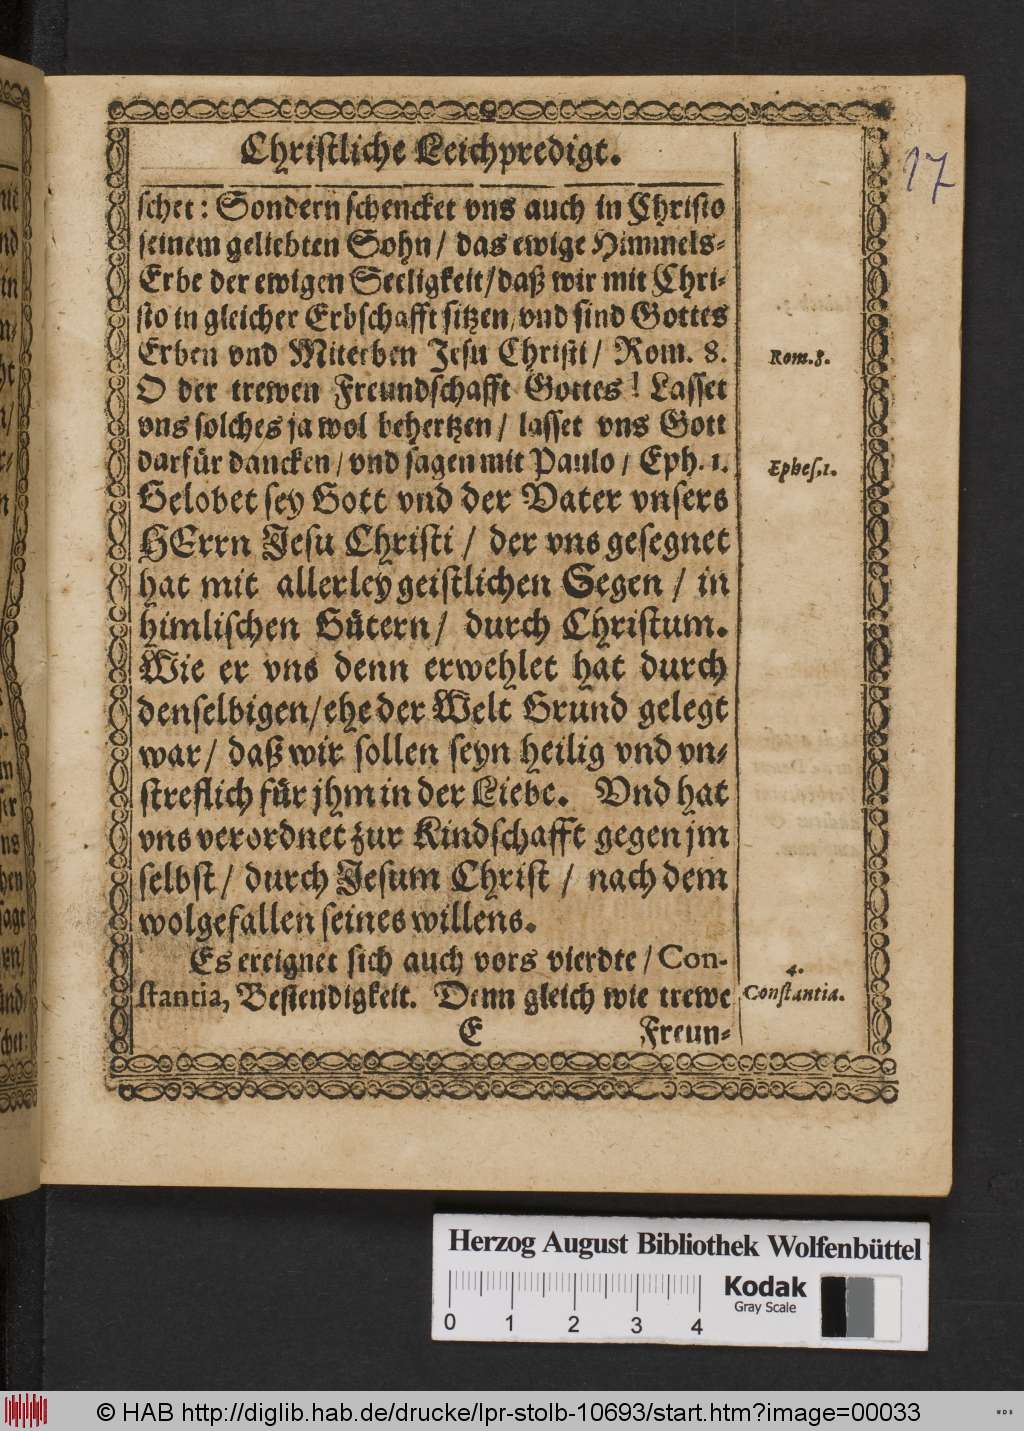 Christliche Leichpredigt.
17
schet: Sondern schencket vns auch in Christo
seinem geliebten Sohn/ das ewige Himmels-
Erbe der ewigen Seeligkeit/ daß wir mit Chri-
sto in gleicher Erbschafft sitzen/ vnd sind Gottes
Erben vnd Miterben Jesu Christi/ Rom. 8.
Rom.8.
O der trewen Freundschafft Gottes! Lasset
vns solches ja wol behertzen/ lasset vns Gott
darfür dancken/ vnd sagen mit Paulo/ Eph. 1.
Ephes.1.
Gelobet sey Gott vnd der Vater vnsers
HErrn Jesu Christi/ der vns gesegnet
hat mit allerley geistlichen Segen/ in
himlischen Gütern/ durch Christum.
Wie er vns denn erwehlet hat durch
denselbigen/ ehe der Welt Grund gelegt
war/ daß wir sollen seyn heilig vnd vn-
streflich für jhm in der Liebe. Vnd hat
vns verordnet zur Kindschafft gegen jm
selbst/ durch Jesum Christ/ nach dem
wolgefallen seines willens.
Es ereignet sich auch vors vierdte/ Con-
stantia, Bestendigkeit. Denn gleich wie trewe
4.
Constantia.
E Freun-
Herzog August Bibliothek Wolfenbüttel
Kodak
Gray Scale
0 1 2 3 4
© HAB http://diglib.hab.de/drucke/lpr-stolb-10693/start.htm?image=00033